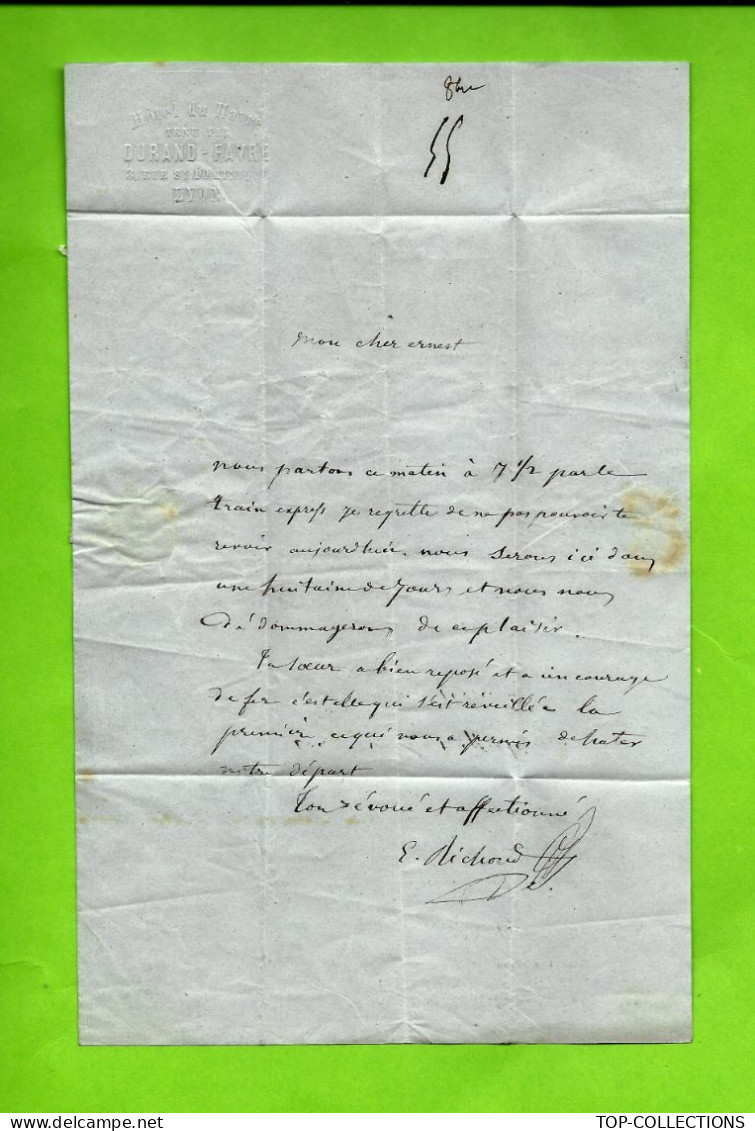 8bre
55
Hôtel du Havre
TENU PAR
DURAND-FAVRE
3, RUE St
LYON
mon cher ernest
nous partons ce matin à 7 1/2 par le
train express je regrette de ne pas pouvoir te
revoir aujourdhui. nous serons ici dans
une huitaine de jours et nous nous
dédommagerons de ce plaisir.
Ta sœur a bien reposé et a un courage
de fer c'est elle qui s'est réveillée la
première, ce qui nous a permis de hater
notre départ
Ton dévoué et affectionné
E. Richoud
TOP-COLLECTIONS